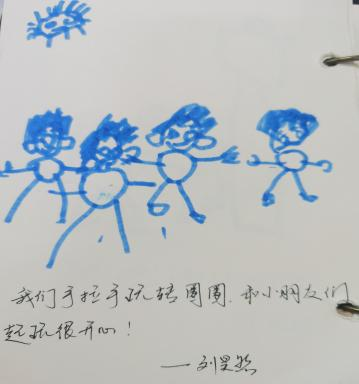 我们手拉手玩转圈圈.和小朋友们
起玩很开心!
—刘昊然